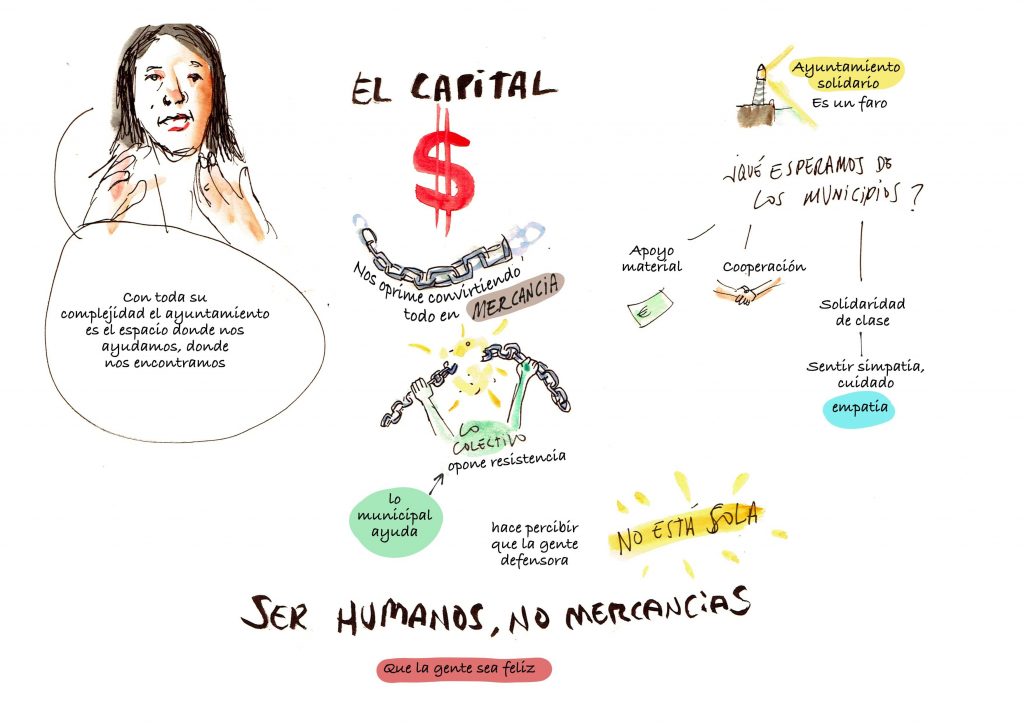 Con toda su
complejidad el ayuntamiento
es el espacio donde nos
ayudamos, donde
nos encontramos
EL CAPITAL
$
Nos oprime convirtiendo
todo en MERCANCIA
LO
COLECTIVO
opone resistencia
lo
municipal
ayuda
hace percibir
que la gente
defensora
NO ESTÁ SOLA
Ayuntamiento
solidario
Es un faro
¿QUÉ ESPERAMOS DE
LOS MUNICIPIOS?
Apoyo
material
€
Cooperación
Solidaridad
de clase
Sentir simpatia,
cuidado
empatia
SER HUMANOS, NO MERCANCIAS
Que la gente sea feliz